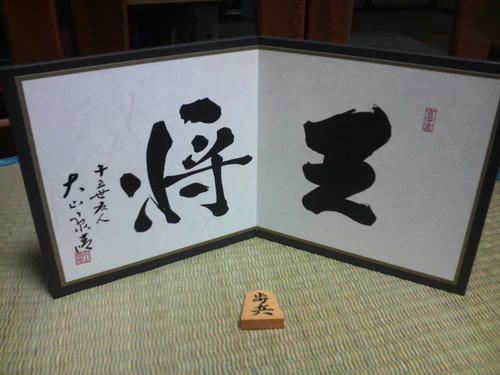 王将
十五世名人
大山康晴
歩兵